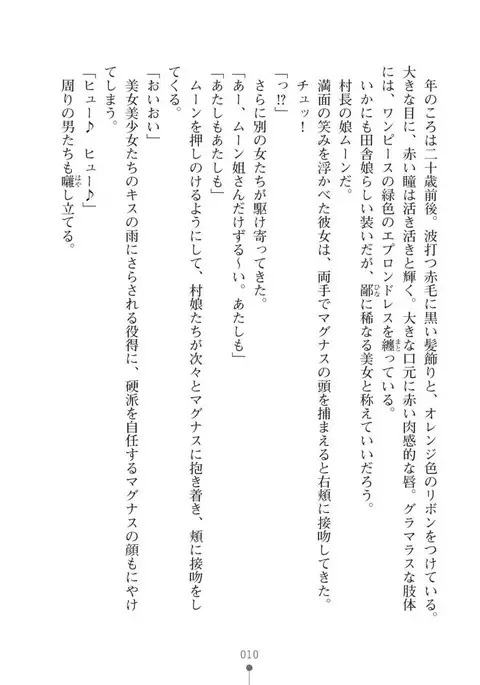 年のころは二十歳前後。波打つ赤毛に黒い髪飾りと、オレンジ色のリボンをつけている。
大きな目に、赤い瞳は活き活きと輝く。大きな口元に赤い肉感的な唇。グラマラスな肢体
には、ワンピースの緑色のエプロンドレスを纏っている。
いかにも田舎娘らしい装いだが、鄙に稀なる美女と称えていいだろう。
村長の娘ムーンだ。
満面の笑みを浮かべた彼女は、両手でマグナスの頭を捕まえると右頬に接吻してきた。
チュッ！
「っ!?」
さらに別の女たちが駆け寄ってきた。
「あー、ムーン姐さんだけずる〜い。あたしも」
「あたしもあたしも」
ムーンを押しのけるようにして、村娘たちが次々とマグナスに抱き着き、頬に接吻をし
てくる。
「おいおい」
美女美少女たちのキスの雨にさらされる役得に、硬派を自任するマグナスの顔もにやけ
てしまう。
「ヒュー♪　ヒュー♪」
周りの男たちも囃し立てる。
010